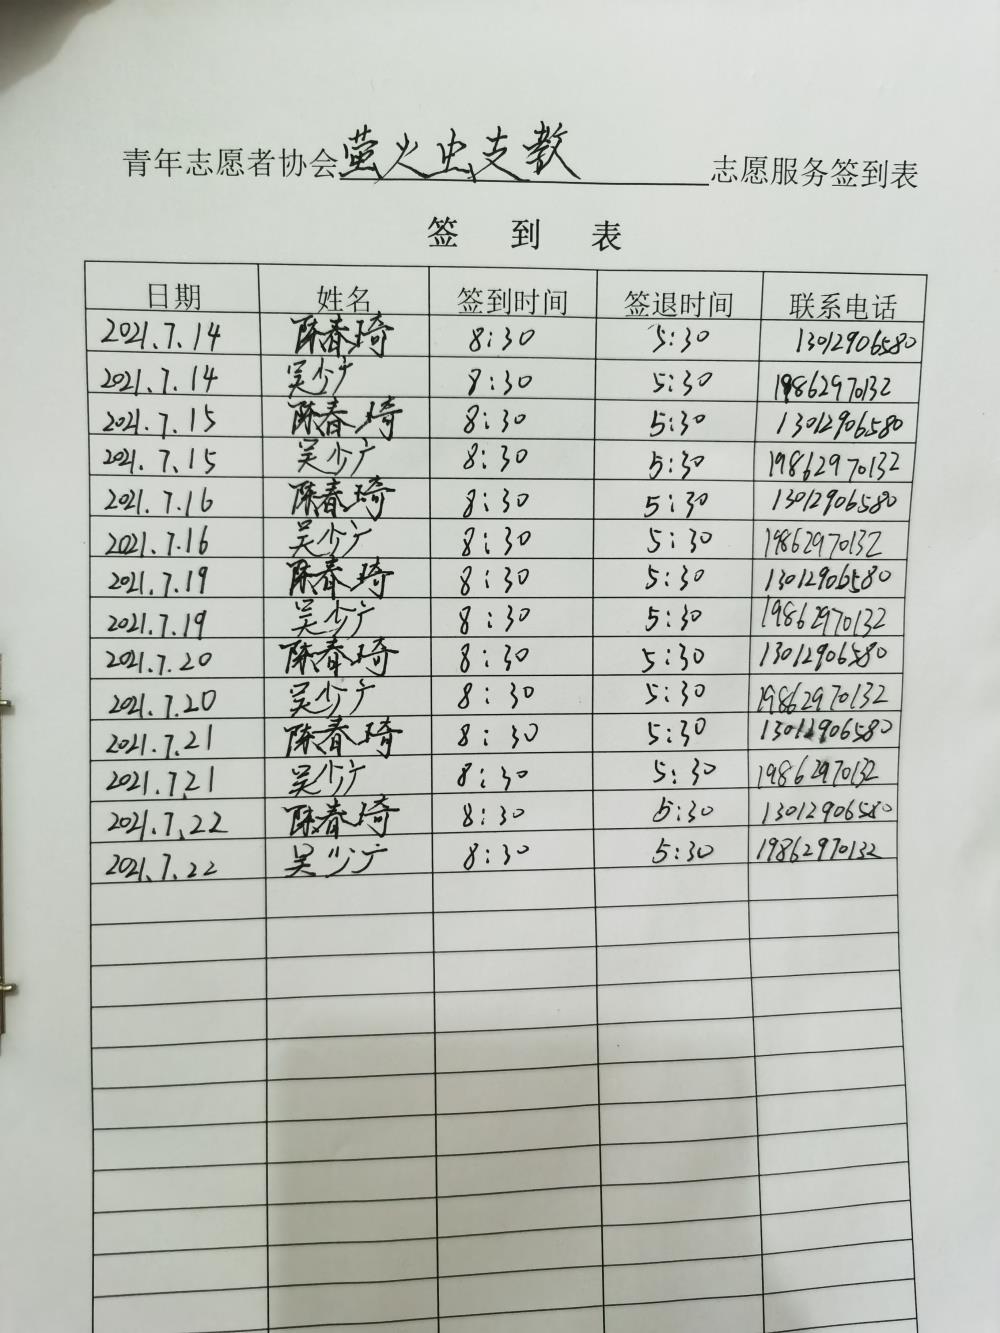 青年志愿者协会萤火虫支教志愿服务签到表
签 到 表
日期 姓名 签到时间 签退时间 联系电话
2021.7.14 陈春琦 8:30 5:30 13012906580
2021.7.14 吴少广 8:30 5:30 19862970132
2021.7.15 陈春琦 8:30 5:30 13012906580
2021.7.15 吴少广 8:30 5:30 19862970132
2021.7.16 陈春琦 8:30 5:30 13012906580
2021.7.16 吴少广 8:30 5:30 19862970132
2021.7.19 陈春琦 8:30 5:30 13012906580
2021.7.19 吴少广 8:30 5:30 19862970132
2021.7.20 陈春琦 8:30 5:30 13012906580
2021.7.20 吴少广 8:30 5:30 19862970132
2021.7.21 陈春琦 8:30 5:30 13012906580
2021.7.21 吴少广 8:30 5:30 19862970132
2021.7.22 陈春琦 8:30 5:30 13012906580
2021.7.22 吴少广 8:30 5:30 19862970132